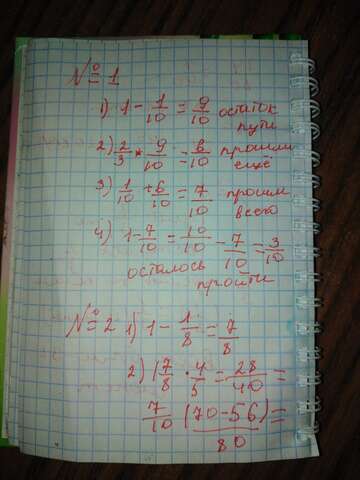 № 1
1) 1 - 1/10 = 9/10 остаток
пути
2) 2/3 * 9/10 = 6/10 прошли
ещё
3) 1/10 + 6/10 = 7/10 прошли
всего
4) 1 - 7/10 = 10/10 - 7/10 = 3/10
осталось
пройти
№ 2 1) 1 - 1/8 = 7/8
2) 7/8 · 4/5 = 28/40 =
7/10 (70-56)/80 =